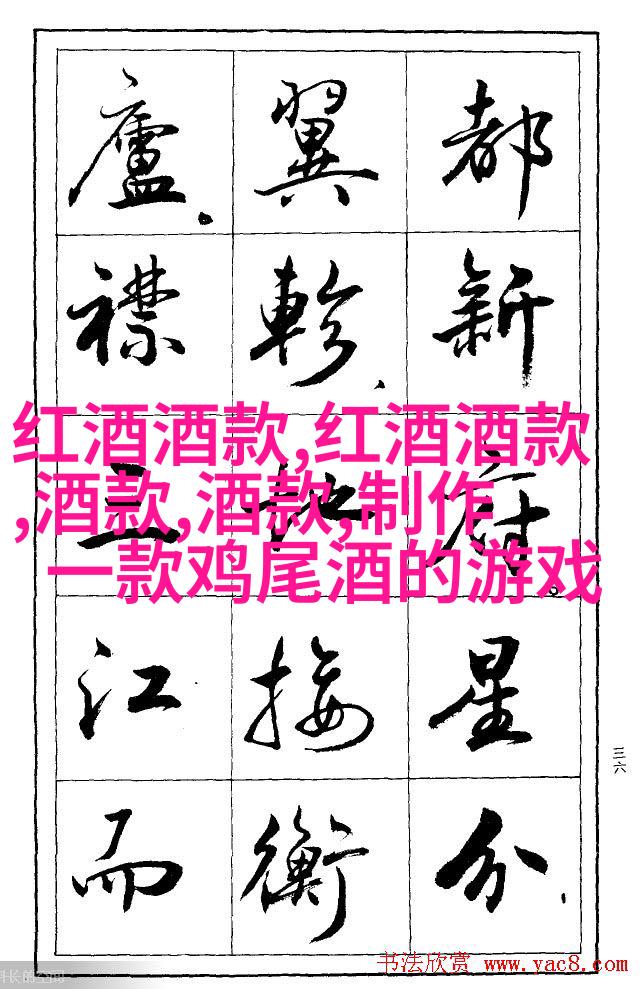 都新府。星分、
翼軫、地接衡
廬。襟三江而
红酒酒款,红酒酒款
,酒款,酒款,制作
一款鸡尾酒的游戏
三六
书法欣赏 www.yac8.com
长的空间